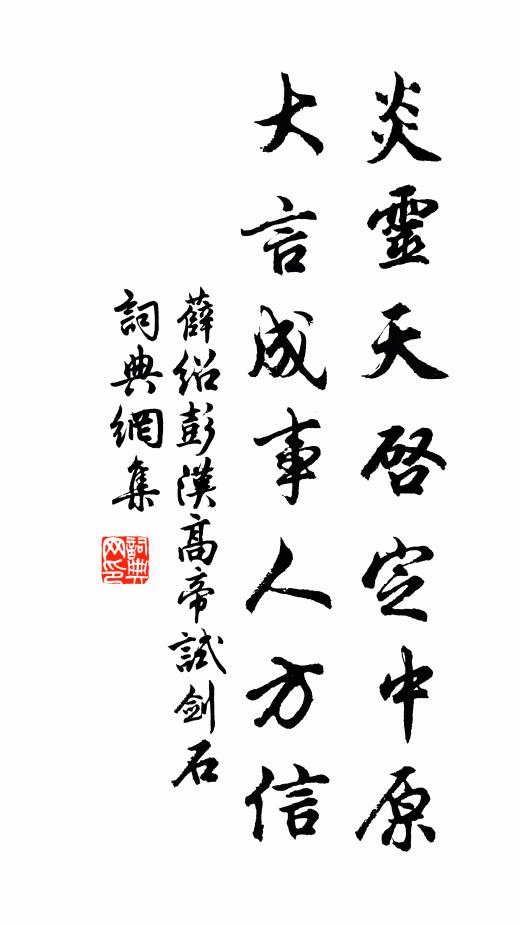 炎靈天啓定中原
大言成事人方信
薛绍彭漢高帝試劍石
詞典網集
詞典网印